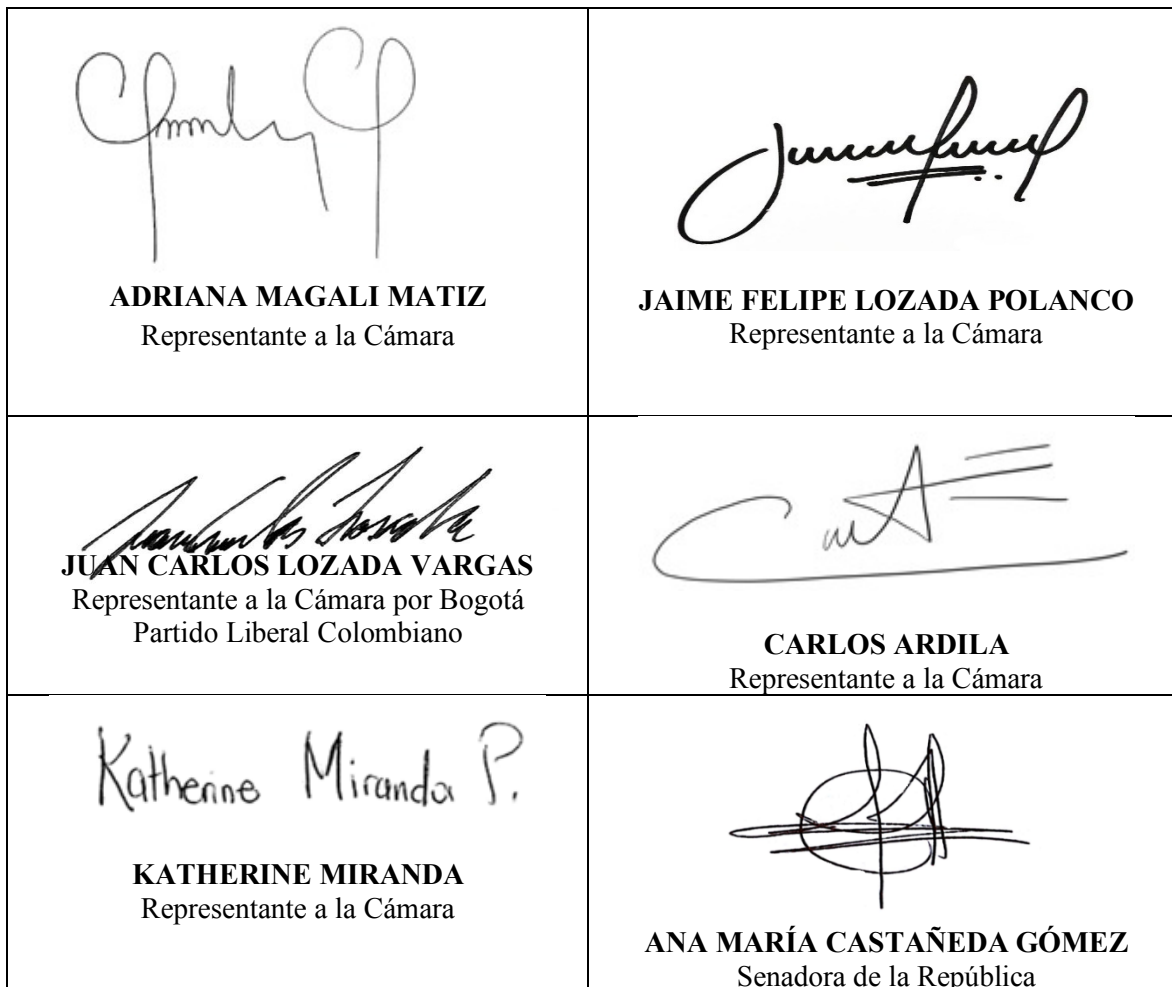 ADRIANA MAGALI MATIZ
Representante a la Cámara
JAIME FELIPE LOZADA POLANCO
Representante a la Cámara
Juan Carlos Lozada
JUAN CARLOS LOZADA VARGAS
Representante a la Cámara por Bogotá
Partido Liberal Colombiano
CARLOS ARDILA
Representante a la Cámara
Katherine Miranda P.
KATHERINE MIRANDA
Representante a la Cámara
ANA MARÍA CASTAÑEDA GÓMEZ
Senadora de la República